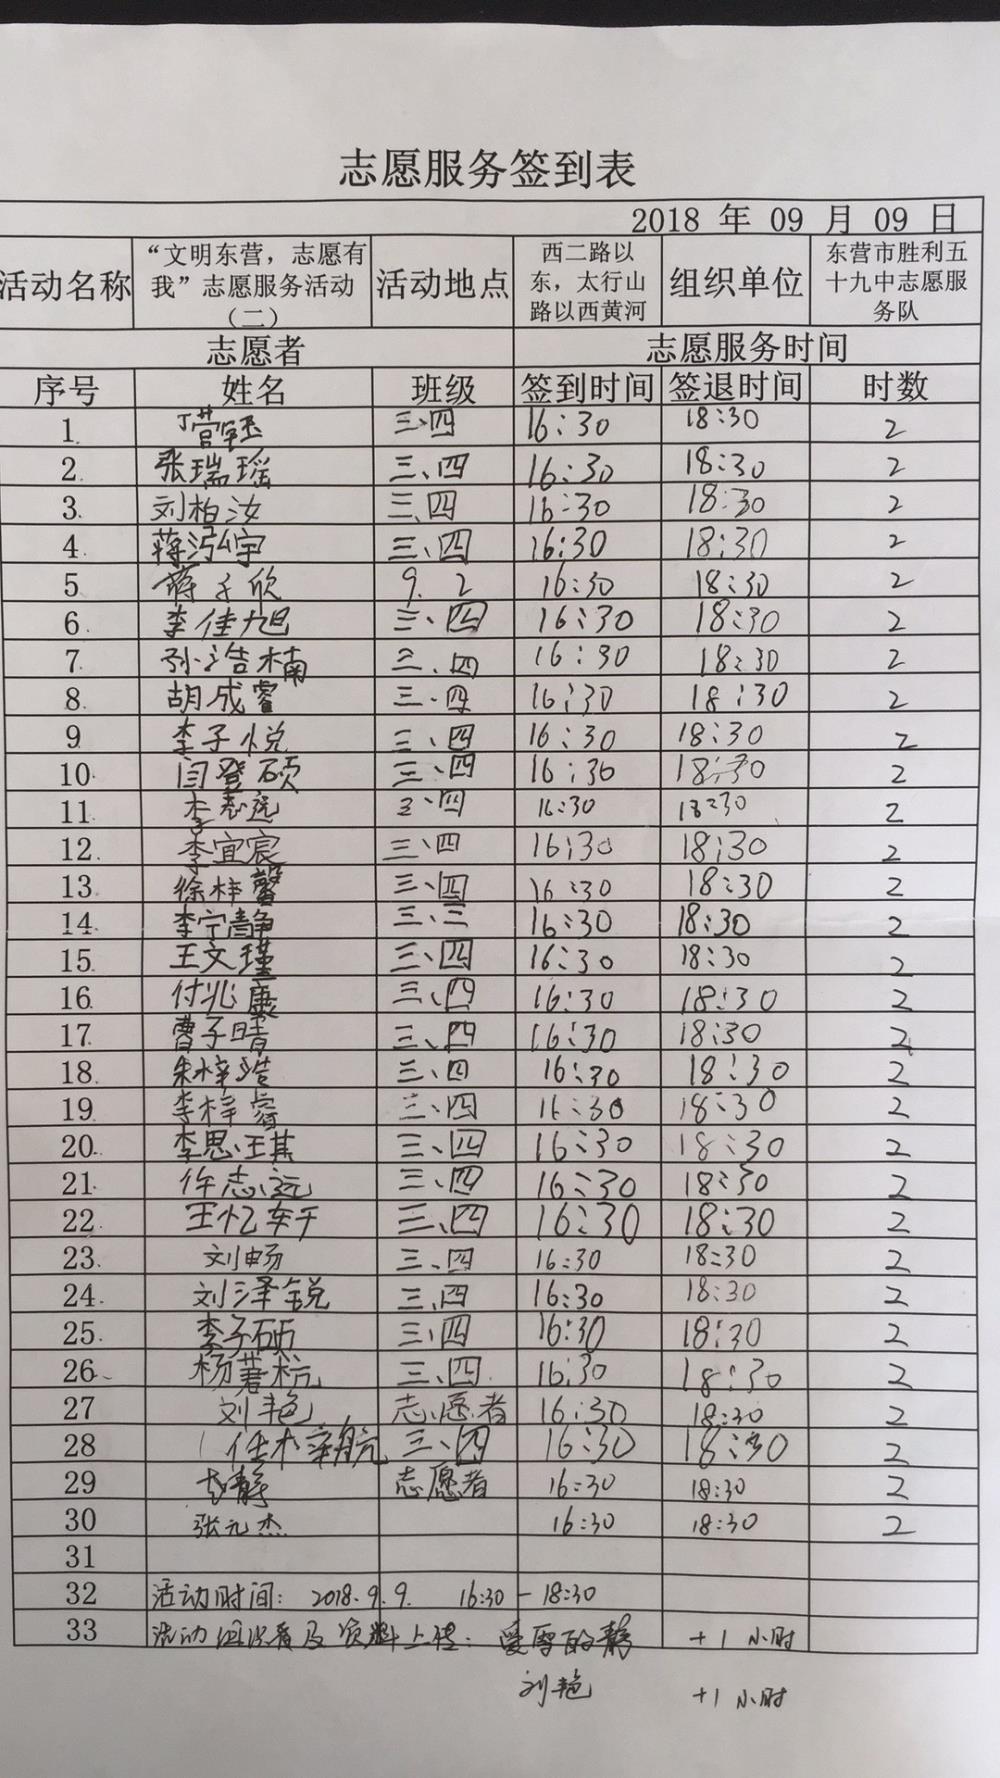 志愿服务签到表
2018 年 09 月 09 日
活动名称 “文明东营，志愿有我”志愿服务活动（二） 活动地点 西二路以东，太行山路以西黄河 组织单位 东营市胜利五十九中志愿服务队
志愿者 志愿服务时间
序号 姓名 班级 签到时间 签退时间 时数
1. 丁营钰 三、四 16:30 18:30 2
2. 张瑞瑶 三、四 16:30 18:30 2
3. 刘柏汝 三、四 16:30 18:30 2
4. 蒋泓宇 三、四 16:30 18:30 2
5 蒋子欣 9. 2 16:30 18:30 2
6. 李佳旭 三、四 16:30 18:30 2
7. 孙浩楠 三、四 16:30 18:30 2
8. 胡成睿 三、四 16:30 18:30 2
9 李子悦 三、四 16:30 18:30 2
10. 闫登硕 三、四 16:30 18:30 2
11. 李志远 三、四 16:30 18:30 2
12. 李宜宸 三、四 16:30 18:30 2
13. 徐梓馨 三、四 16:30 18:30 2
14. 李宁静 三、三 16:30 18:30 2
15. 王文瑾 三、四 16:30 18:30 2
16. 付兆康 三、四 16:30 18:30 2
17. 曹子晴 三、四 16:30 18:30 2
18. 朱梓浩 三、四 16:30 18:30 2
19. 李梓睿 三、四 16:30 18:30 2
20. 李思琪 三、四 16:30 18:30 2
21. 徐志远 三、四 16:30 18:30 2
22. 王忆轩 三、四 16:30 18:30 2
23. 刘畅 三、四 16:30 18:30 2
24. 刘泽锐 三、四 16:30 18:30 2
25. 李子硕 三、四 16:30 18:30 2
26. 杨著杭 三、四 16:30 18:30 2
27 刘艳 志愿者 16:30 18:30 2
28 任木泽航 三、四 16:30 18:30 2
29 静 志愿者 16:30 18:30 2
30 张元杰 16:30 18:30 2
31
32 活动时间：2018.9.9. 16:30-18:30
33 活动组织者及资料上传：爱雪的静 +1小时
刘艳 +1小时